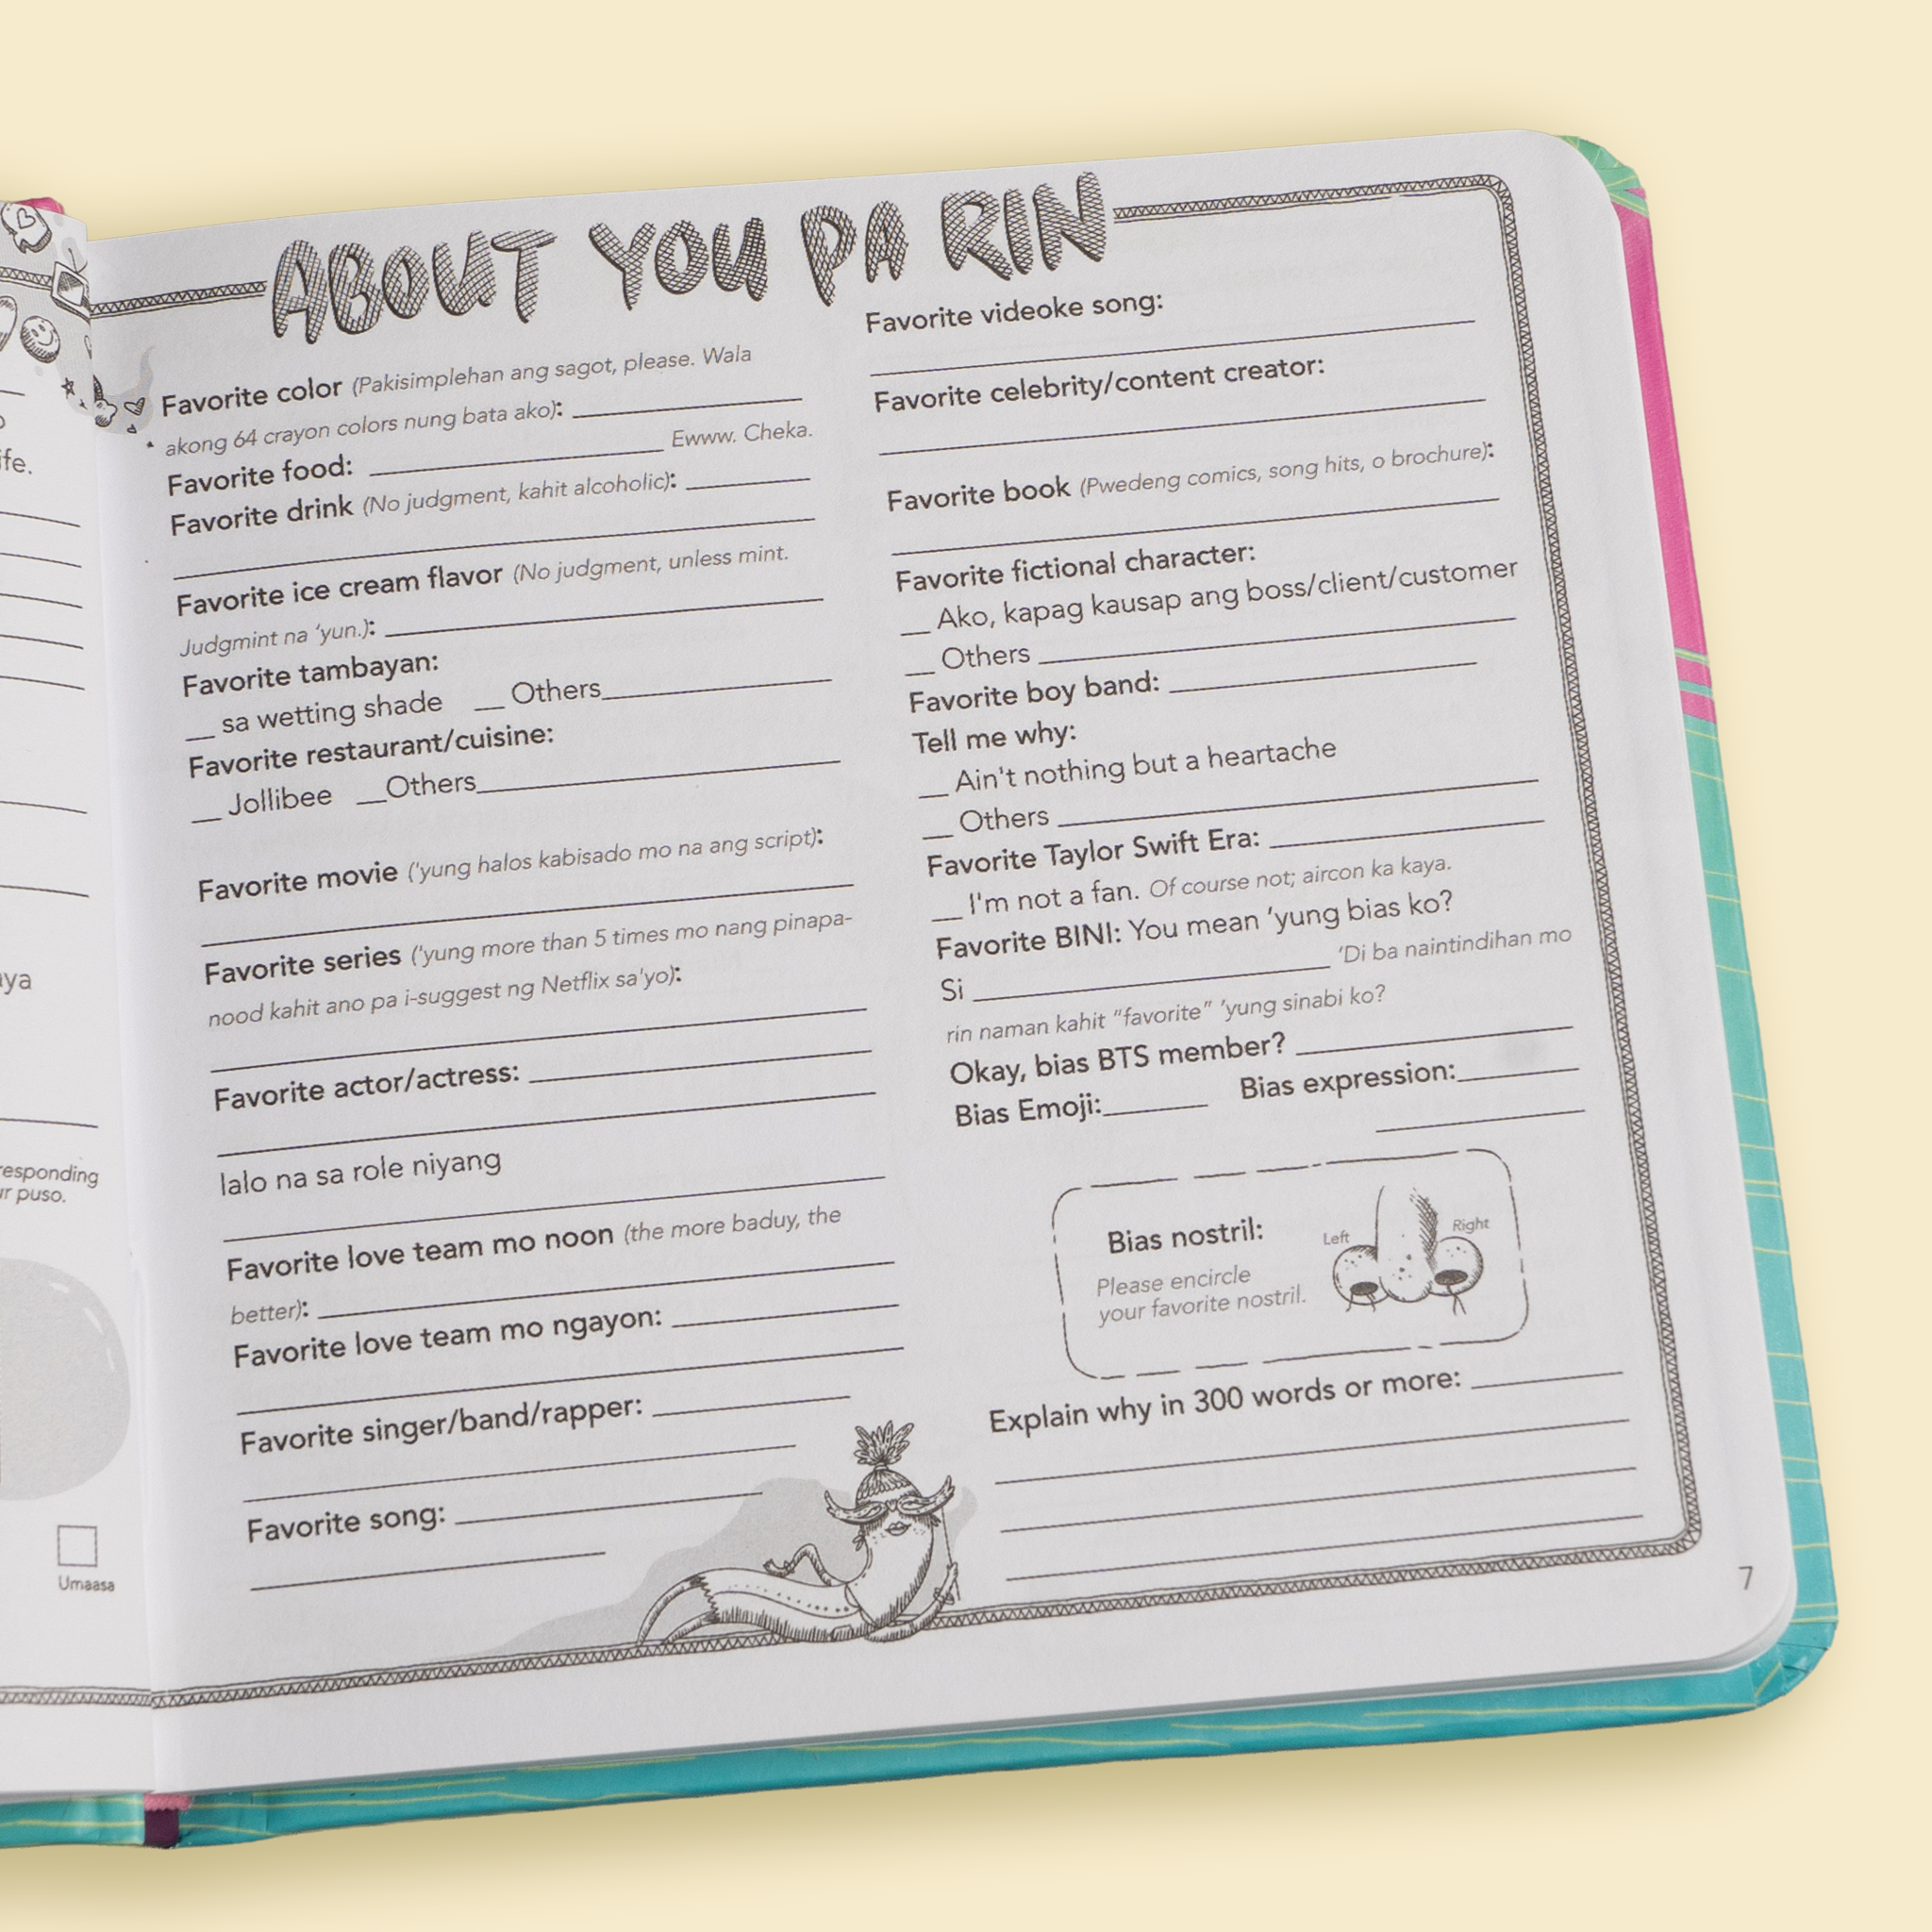 ife.
aya
responding
ur puso.
Umaasa
ABOUT YOU PA RIN
Favorite color (Pakisimplehan ang sagot, please. Wala
akong 64 crayon colors nung bata ako): 
Favorite food: ____ Ewww. Cheka.
Favorite drink (No judgment, kahit alcoholic): ____
Favorite ice cream flavor (No judgment, unless mint.
Judgmint na ‘yun.): ____
Favorite tambayan:
__ sa wetting shade __ Others____
Favorite restaurant/cuisine:
__ Jollibee __Others____
Favorite movie ('yung halos kabisado mo na ang script):
Favorite series ('yung more than 5 times mo nang pinapa-
nood kahit ano pa i-suggest ng Netflix sa'yo):
Favorite actor/actress: ____
lalo na sa role niyang
Favorite love team mo noon (the more baduy, the
better): ____
Favorite love team mo ngayon: ____
Favorite singer/band/rapper: ____
Favorite song: ____
Favorite videoke song:
Favorite celebrity/content creator:
Favorite book (Pwedeng comics, song hits, o brochure):
Favorite fictional character:
__ Ako, kapag kausap ang boss/client/customer
__ Others ____
Favorite boy band: ____
Tell me why:
__ Ain't nothing but a heartache
__ Others ____
Favorite Taylor Swift Era: ____
__ I'm not a fan. Of course not; aircon ka kaya.
Favorite BINI: You mean ‘yung bias ko?
Si ____ ‘Di ba naintindihan mo
rin naman kahit “favorite” ‘yung sinabi ko?
Okay, bias BTS member? ____
Bias Emoji:____ Bias expression:____
Bias nostril:
Left
Right
Please encircle
your favorite nostril.
Explain why in 300 words or more: ____
7